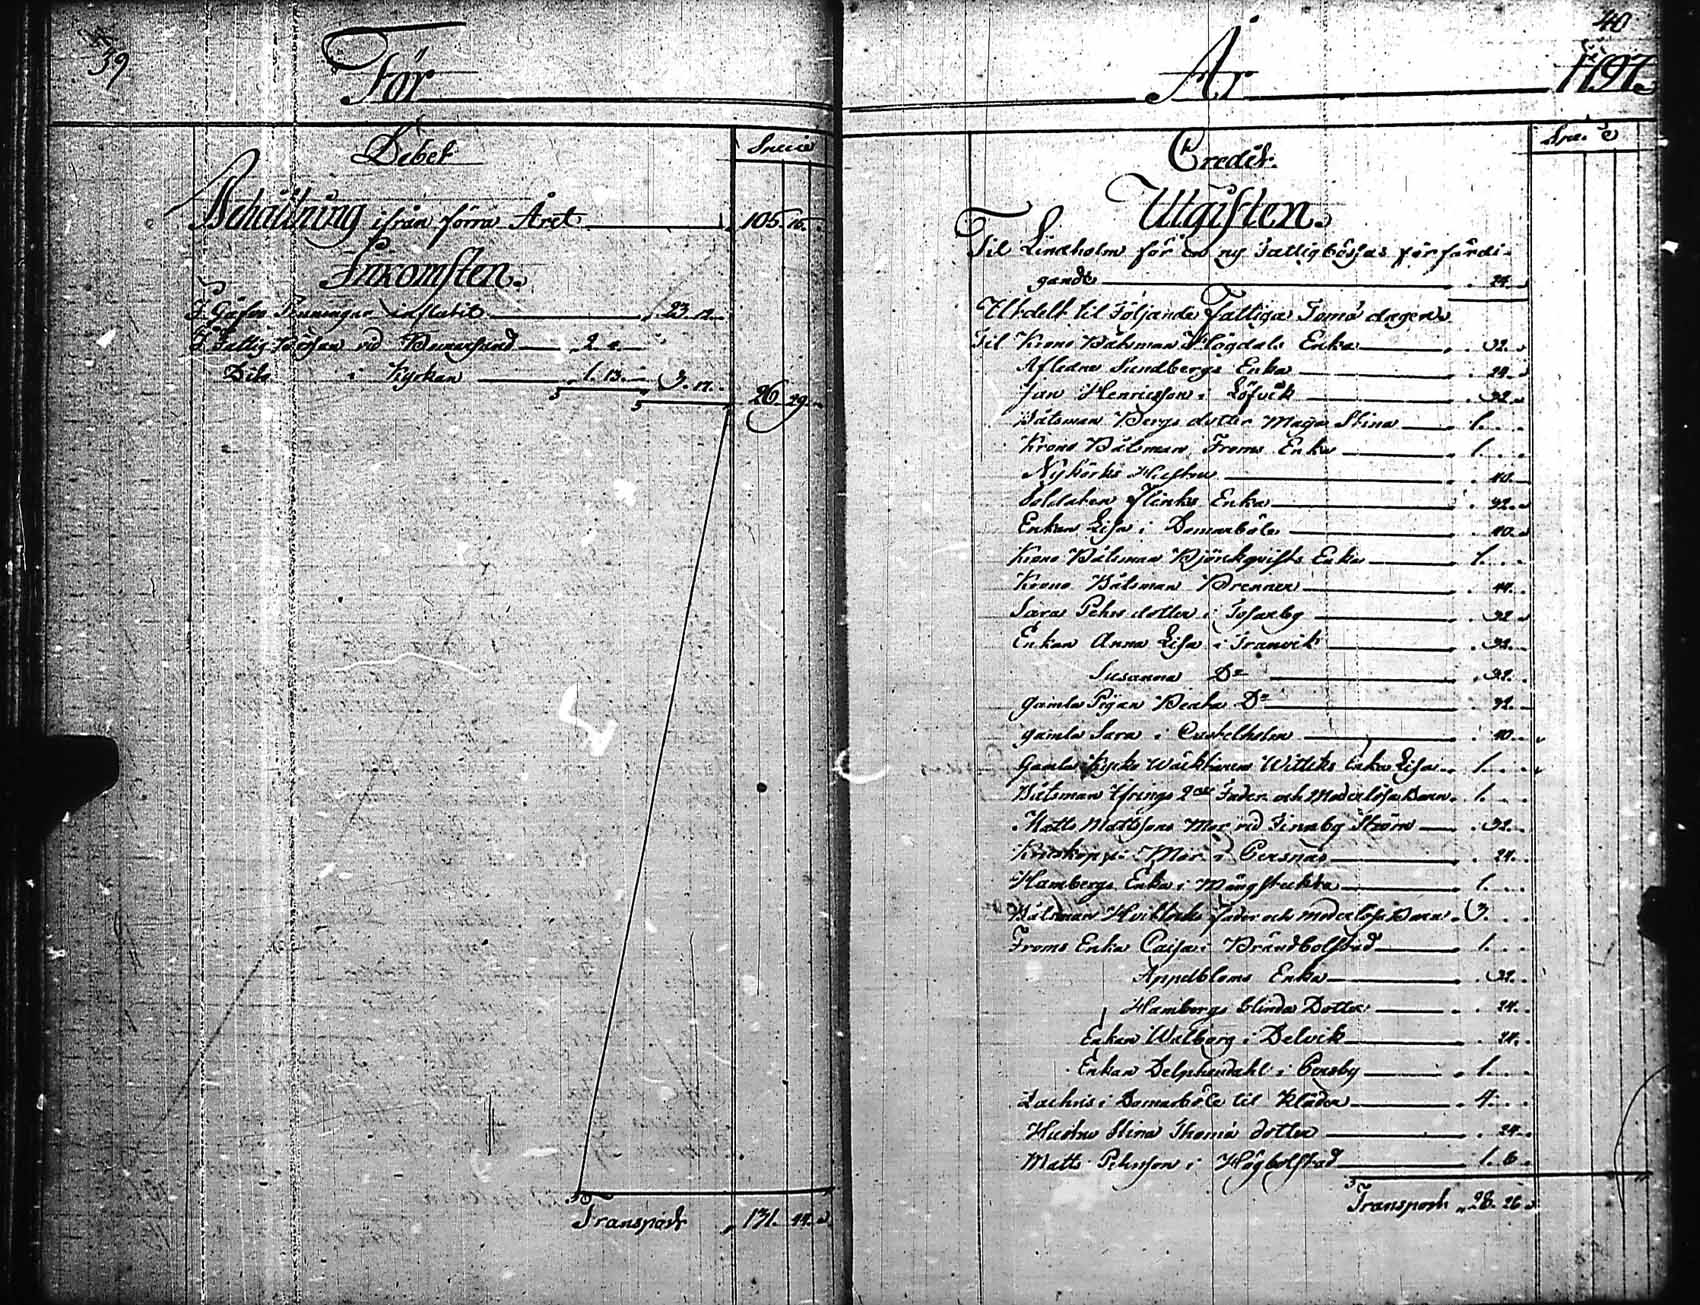 39
För
Debet
Specie
Behållning ifrån förra Året 105. 15.
Inkomsten.
I Gåfvo Penningar influtit 23. 12.
I Fattig Bössan vid Bomarsund 2. 4.
Dito Kyrkan 1. 13. 3. 17. 26. 29.
Transport 131. 44.
40
År 1797.
Credit.
Specie
Utgiften.
Til Lindholm för en ny Fattigbössas förfärdi-
gande 24.
Utdelt til följande Fattiga Tomæ dagen
Til Krono Båtsman Enka 32.
Afledne Sundbergs Enka 24.
Jan Henricsson i Löfvik 32.
Båtsman Bergs dotter Maja Stina 1.
Krono Båtsman Froms Enka 1.
Hustru 40.
Soldaten Flinks Enka 32.
Enkan Lisa i Domarböle 40.
Krono Båtsman Björkqvists Enka 1.
Krono Båtsman Brenner 44.
Sara Pehrs dotter i Tosarby 32.
Enkan Anna Lisa i Tranvik 32.
Susanna Do 32.
gamla Pigan Beata Do 32.
gamla Sara i Castelholm 40.
Gamla Kyrko Wäcktarens Enka Lisa 1.
Båtsman 2ne Fader och Moderlösa Barn 1.
Matts Mattssons Mor vid Finnby Ström 32.
Mor i Persnäs 24.
Hambergs Enka i Mångstekta 1.
Båtsman fader och moderlösa Barn 3.
Froms Enka Caisa i Brändbolstad 1.
Appelbloms Enka 32.
Hambergs blinda Dotter 24.
Enkan Walborg i Delvik 24.
Enkan Delphendahl i Persby 1.
Zachris i Domarböle til Kläder 4.
Hustru Stina Thomæ dotter 24.
Matts Pehrsson i Högbolstad 1. 6.
Transport 28. 26